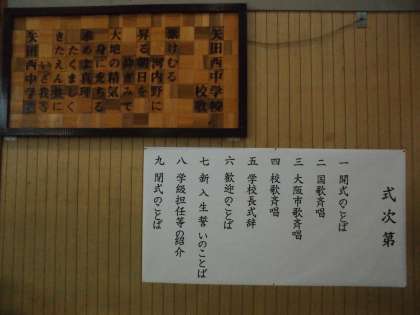 矢田西中学校
校歌
歌けむる
河内野に
昇る朝日を
仰ぎみて
大地の精気
身に充ちる
求めよ真理
たくましく
きたえん
いざ我等
矢田西中学
式次第
一 開式のことば
二 国歌斉唱
三 大阪市歌斉唱
四 校歌斉唱
五 学校長式辞
六 歓迎のことば
七 新入生誓いのことば
八 学級担任等の紹介
九 閉式のことば